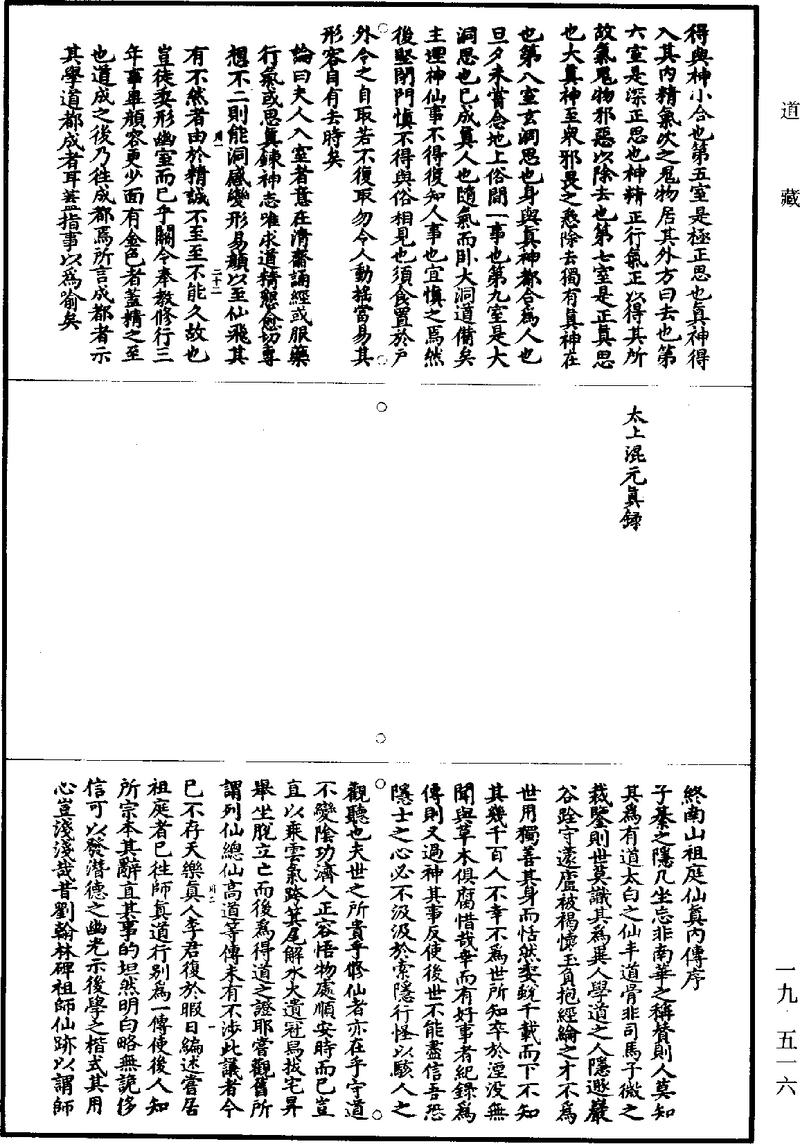 道藏
得與神小合也第五室是極正思也真神得
入其内精氣次之鬼物居其外方曰去也第
六室是深正思也神精正行氣正以得其所
故氣鬼物邪惡以除去也第七室是正真思
也大真神至衆邪畏之悉除去獨有真神在
也第八室玄洞思也身與真神都合為人也
旦夕未嘗念地上俗間一事也第九室是大
洞思也已成真人也隨氣而卧大洞道備矣
主理神仙事不得復知人事也宜慎之焉然
後堅閉門慎不得與俗相見也須食置於户
外令之自取若不復取勿令人動摇當易其
形容自有去時矣
論曰夫人入室者意在清齋誦經或服藥
行氣或思真鍊神志唯求道精懇愈切專
想不二則能洞感變形易顔以至仙飛其
有不然者由於精誠不至至不能久故也
豈徒委形幽室而已乎關令奉教修行三
年事畢顔容更少面有金色者蓋精之至
也道成之後乃往成都焉所言成都者示
其學道都成者耳蓋指事以為喻矣
二十二
太上混元真録
終南山祖庭仙真内傳序
子綦之隱几坐忘非南華之稱賛則人莫知
其為有道太白之仙丰道骨非司馬子微之
裁鑒則世莫識其為異人學道之人隱遯巖
谷跧守蓬廬被褐懷玉負抱經綸之才不為
世用獨善其身而恬然委蜕千載而下不知
其幾千百人不幸不為世所知卒於湮没無
聞與草木俱腐惜哉幸而有好事者紀録為
傳則又過神其事反使後世不能盡信吾恐
隱士之心必不汲汲於索隱行怪以駭人之
觀聽也夫世之所貴乎修仙者亦在乎守道
不變陰功濟人正容悟物處順安時而已豈
直以乘雲氣跨箕尾解水火遺冠舄拔宅昇
舉坐脱立亡而後為得道之證耶嘗觀舊所
謂列仙總仙高道等傳未有不涉此議者今
已不存天樂真人李君復於暇日編述嘗居
祖庭者已往師真道行别為一傳使後人知
所宗本其辭直其事的坦然明白略無詭侈
信可以發潛德之幽光示後學之楷式其用
心豈淺淺哉昔劉翰林碑祖師仙跡以謂師
一九·五一六